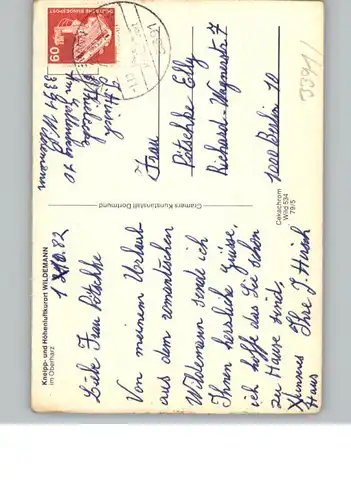 Kneipp- und Höhenluftkurort WILDEMANN
im Oberharz
82
Liebe Frau Pötschke
Von meinen Urlaub
aus dem romantischen
Wildemann sende ich
Ihnen herzliche Grüsse,
ich hoffe das Sie schon
zu Hause sind,
Ihre J. Hirsch
Haus
Cramers Kunstanstalt Dortmund
Cekachrom
Wild 534
79/5
DEUTSCHE BUNDESPOST
60
J. Hirsch
3391 Wildemann
Frau
Pötschke Elly
Richard-Wagnerstr. 7
1000 Berlin 10
3391/